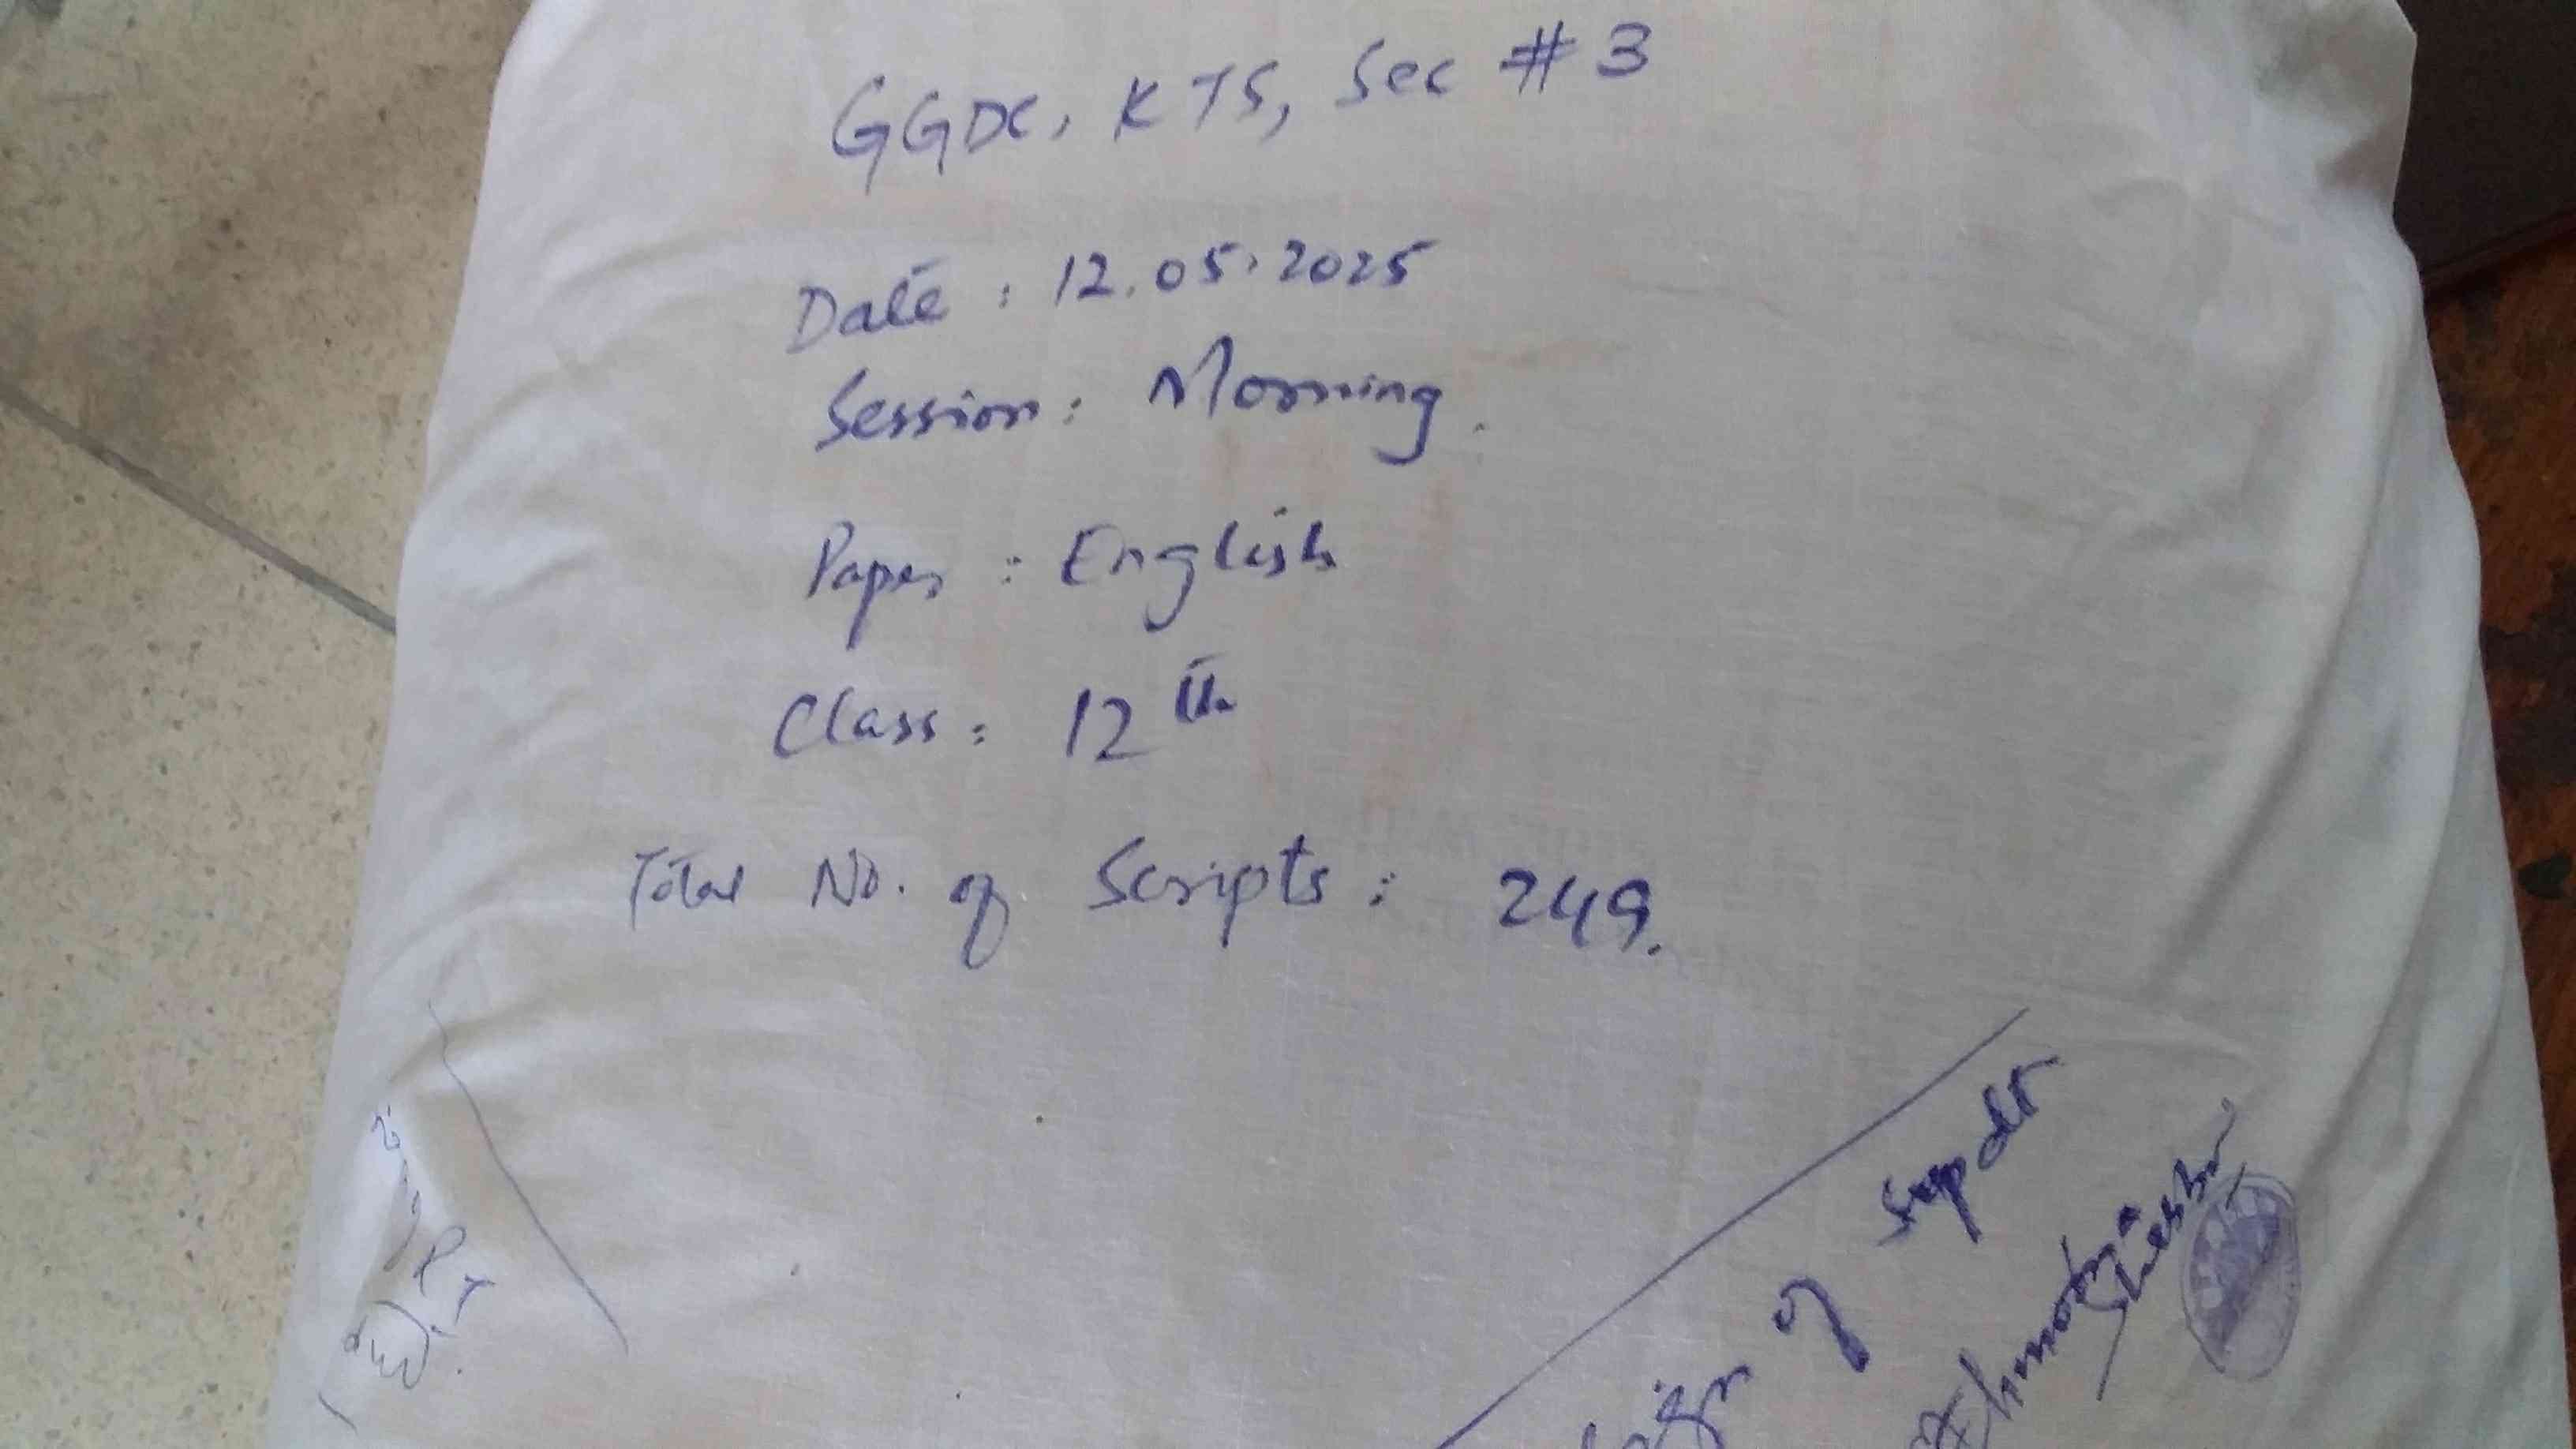 GGDC, KTS, Sec # 3
Date : 12.05.2025
Session : Morning.
Paper : English
Class : 12th
Total No. of Scripts : 249.
Sign of Supdt